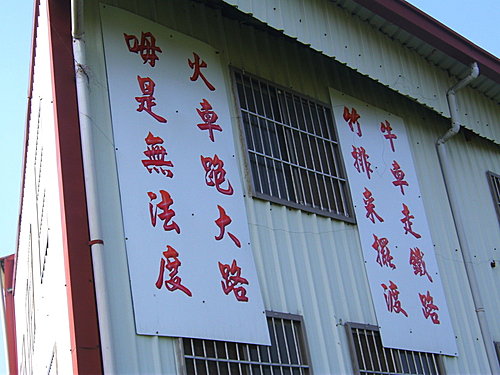 牛車走鐵路
竹排來擺渡
火車跑大路
毋是無法度